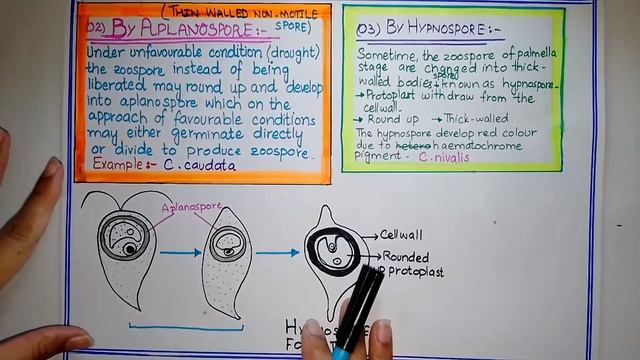 (THIN WALLED NON-MOTILE
SPORE)
02) BY APLANOSPORE:-
Under unfavourable condition (drought)
the zoospore instead of being
liberated may round up and develop
into aplanospore which on the
approach of favourable conditions
may either germinate directly
or divide to produce zoospore.
Example:- C. caudata
03) BY HYPNOSPORE:-
Sometime, the zoospore of palmella
stage are changed into thick-
walled bodies spores known as hypnospore.
→ Protoplast withdraw from the
cell wall.
→ Round up → Thick-walled
The hypnospore develop red colour
due to haematochrome
pigment - C. nivalis
Aplanaspore
Cell wall
Rounded
up protoplast